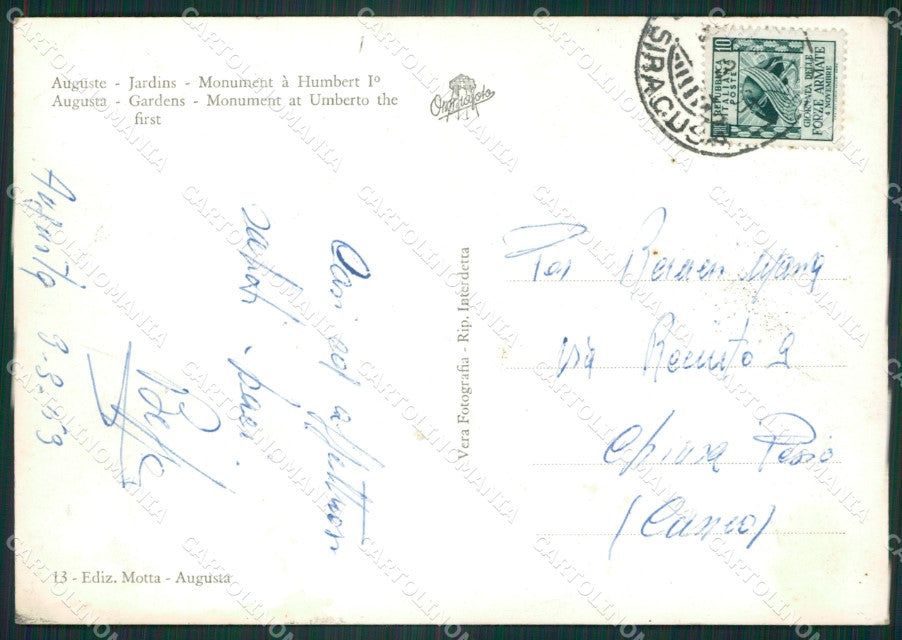 Auguste - Jardins - Monument à Humbert Iº
Augusta - Gardens - Monument at Umberto the
first
Omniafoto
SIRACUSA
10
REPUBBLICA
ITALIANA
POSTE
GIORNATA DELLE
FORZE ARMATE
4 NOVEMBRE
Augusta
Cari ed affettuosi
saluti
Vera Fotografia - Rip. Interdetta
Via Recinto 2
Chiusa Pesio
(Cuneo)
13 - Ediz. Motta - Augusta
CARTOLINOMANIA